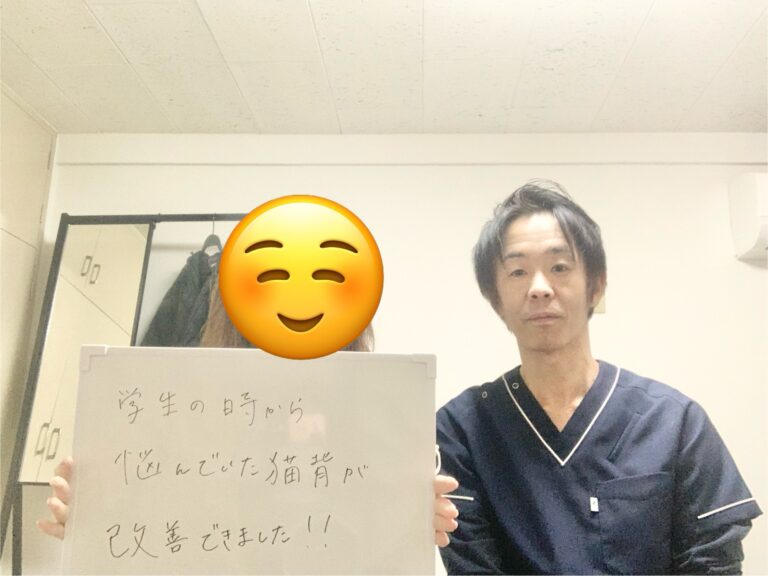 学生の時から
悩んでいた猫背が
改善できました!!